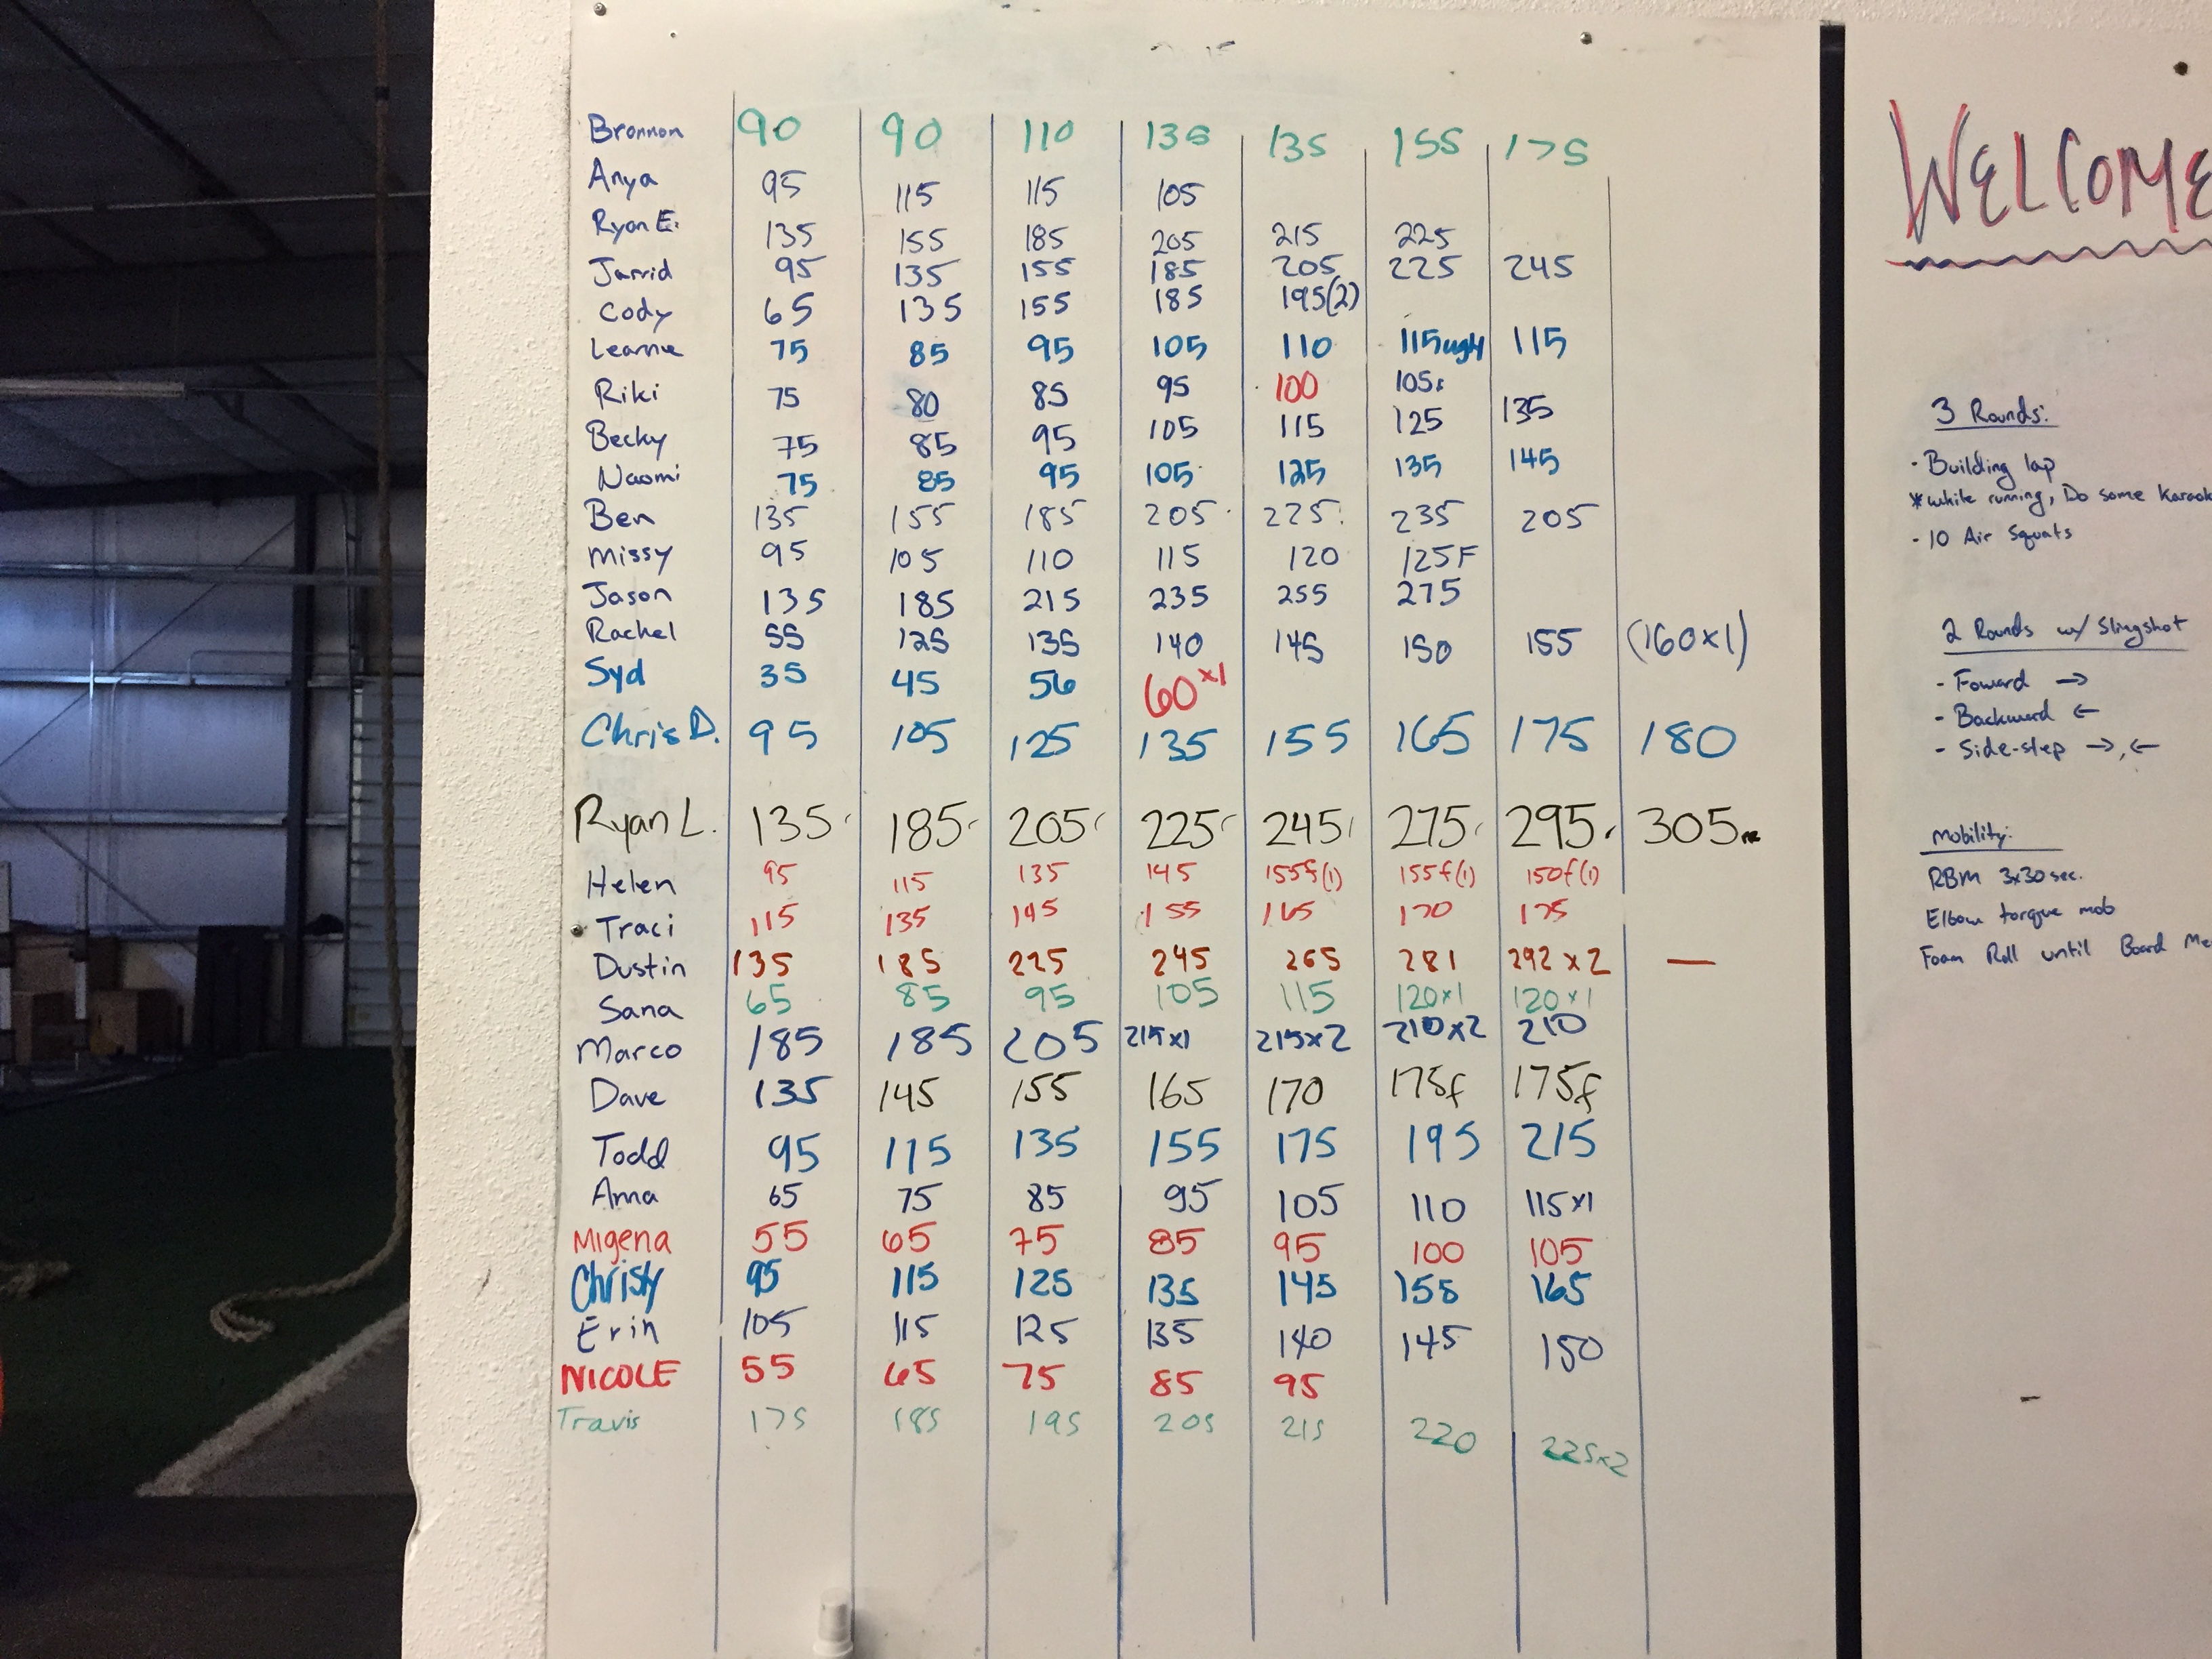 Bronnon 90 90 110 135 135 155 175
Anya 95 115 115 105
Ryan E. 135 155 185 205 215 225
Jarrid 95 135 155 185 205 225 245
Cody 65 135 155 185 195(2)
Leanne 75 85 95 105 110 115ugly 115
Riki 75 80 85 95 100 105
Becky 75 85 95 105 115 125 135
Naomi 75 85 95 105 125 135 145
Ben 135 155 185 205 225 235 205
Missy 95 105 110 115 120 125F
Jason 135 185 215 235 255 275
Rachel 55 125 135 140 145 150 155 (160x1)
Syd 35 45 56 60x1
Chris D. 95 105 125 135 155 165 175 180
Ryan L. 135 185 205 225 245 275 295 305
Helen 95 115 135 145 155f(1) 155f(1) 150f(1)
Traci 115 135 145 155 165 170 175
Dustin 135 185 225 245 265 281 292x2 —
Sana 65 85 95 105 115 120x1 120x1
Marco 185 185 205 215x1 215x2 210x2 210
Dave 135 145 155 165 170 175f 175f
Todd 95 115 135 155 175 195 215
Anna 65 75 85 95 105 110 115x1
Migena 55 65 75 85 95 100 105
Christy 95 115 125 135 145 155 165
Erin 105 115 125 135 140 145 150
NICOLE 55 65 75 85 95
Travis 175 185 195 205 215 220 225x2
WELCOME
3 Rounds:
- Building lap
*while running, Do some Karaok
- 10 Air Squats
2 Rounds w/ Slingshot
- Foward →
- Backward ←
- Side-step →,←
Mobility:
RBM 3x30sec.
Elbow torque mob
Foam Roll until Board Me